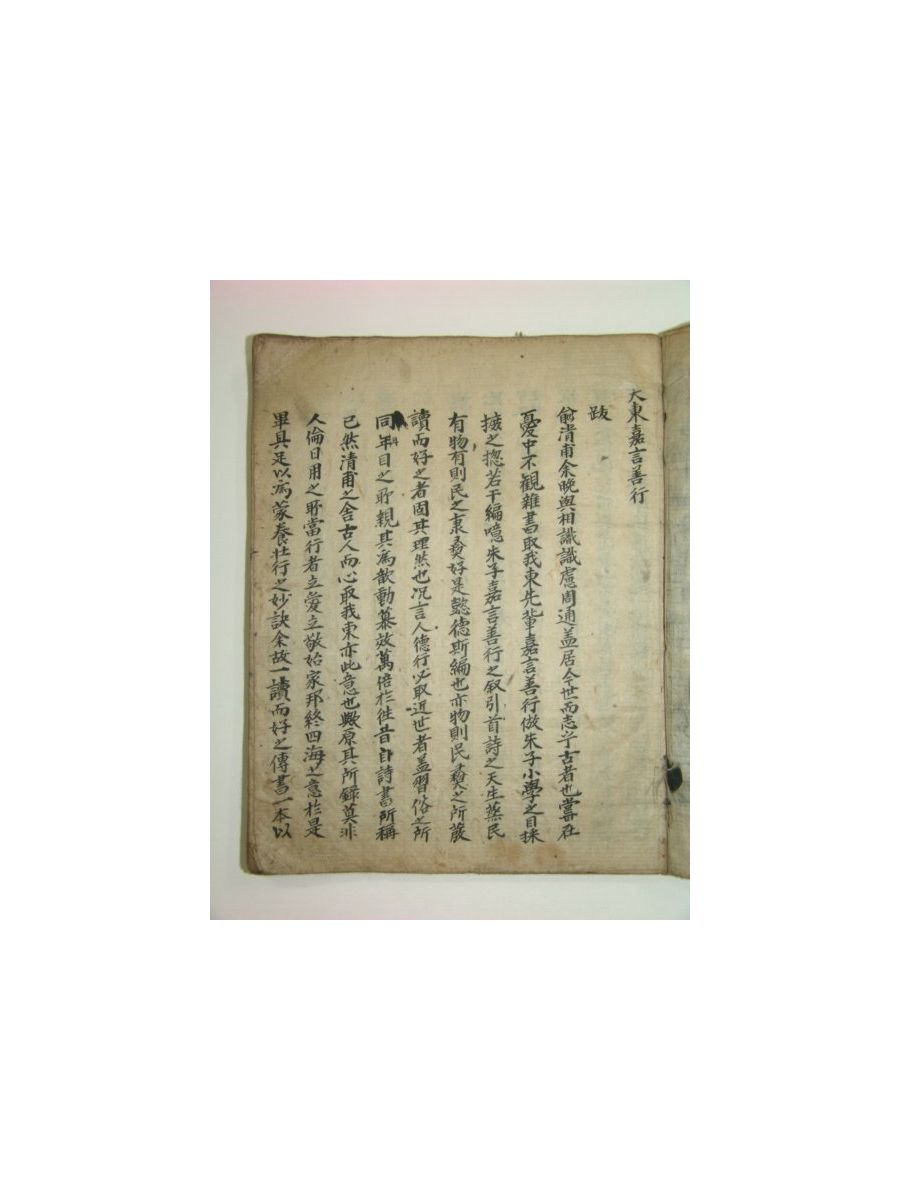 大東嘉言善行
跋
兪清甫余晚與相識識慮周通盖居今世而志乎古者也嘗在
憂中不観雜書取我東先輩嘉言善行倣朱子小學之目採
摭之揔若干編噫朱子嘉言善行之叙引首詩之天生蒸民
有物有則民之秉彛好是懿德斯編也亦物則民彛之所蔵
讀而好之者固其理然也况言人德行必取近世者盖習俗之所
同年目之所親其為歆動慕效萬倍於徃昔自詩書所稱
已然清甫之舎古人而心取我東亦此意也歟原其所錄莫非
人倫日用之所當行者立愛立敬始家邦終四海之意於是
畢具足以為蒙養壮行之妙訣余故一讀而好之傳書一本以